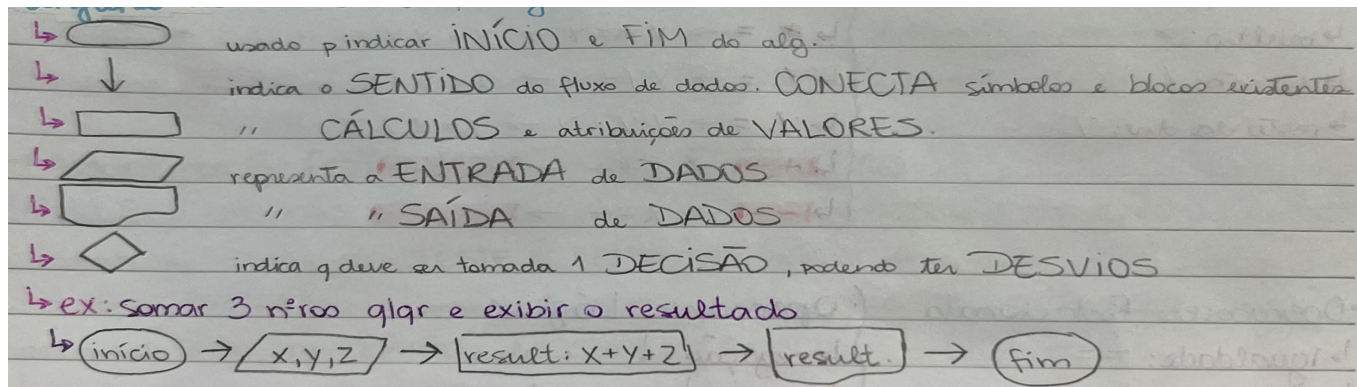 usado p indicar INÍCIO e FIM do alg.
indica o SENTIDO do fluxo de dados. CONECTA símbolos e blocos existentes
" CÁLCULOS e atribuições de VALORES.
representa a ENTRADA de DADOS
" " SAÍDA de DADOS
indica q deve ser tomada 1 DECISÃO, podendo ter DESVIOS
ex: somar 3 nºros qlqr e exibir o resultado
início → x, y, z → result: x+y+z → result. → fim